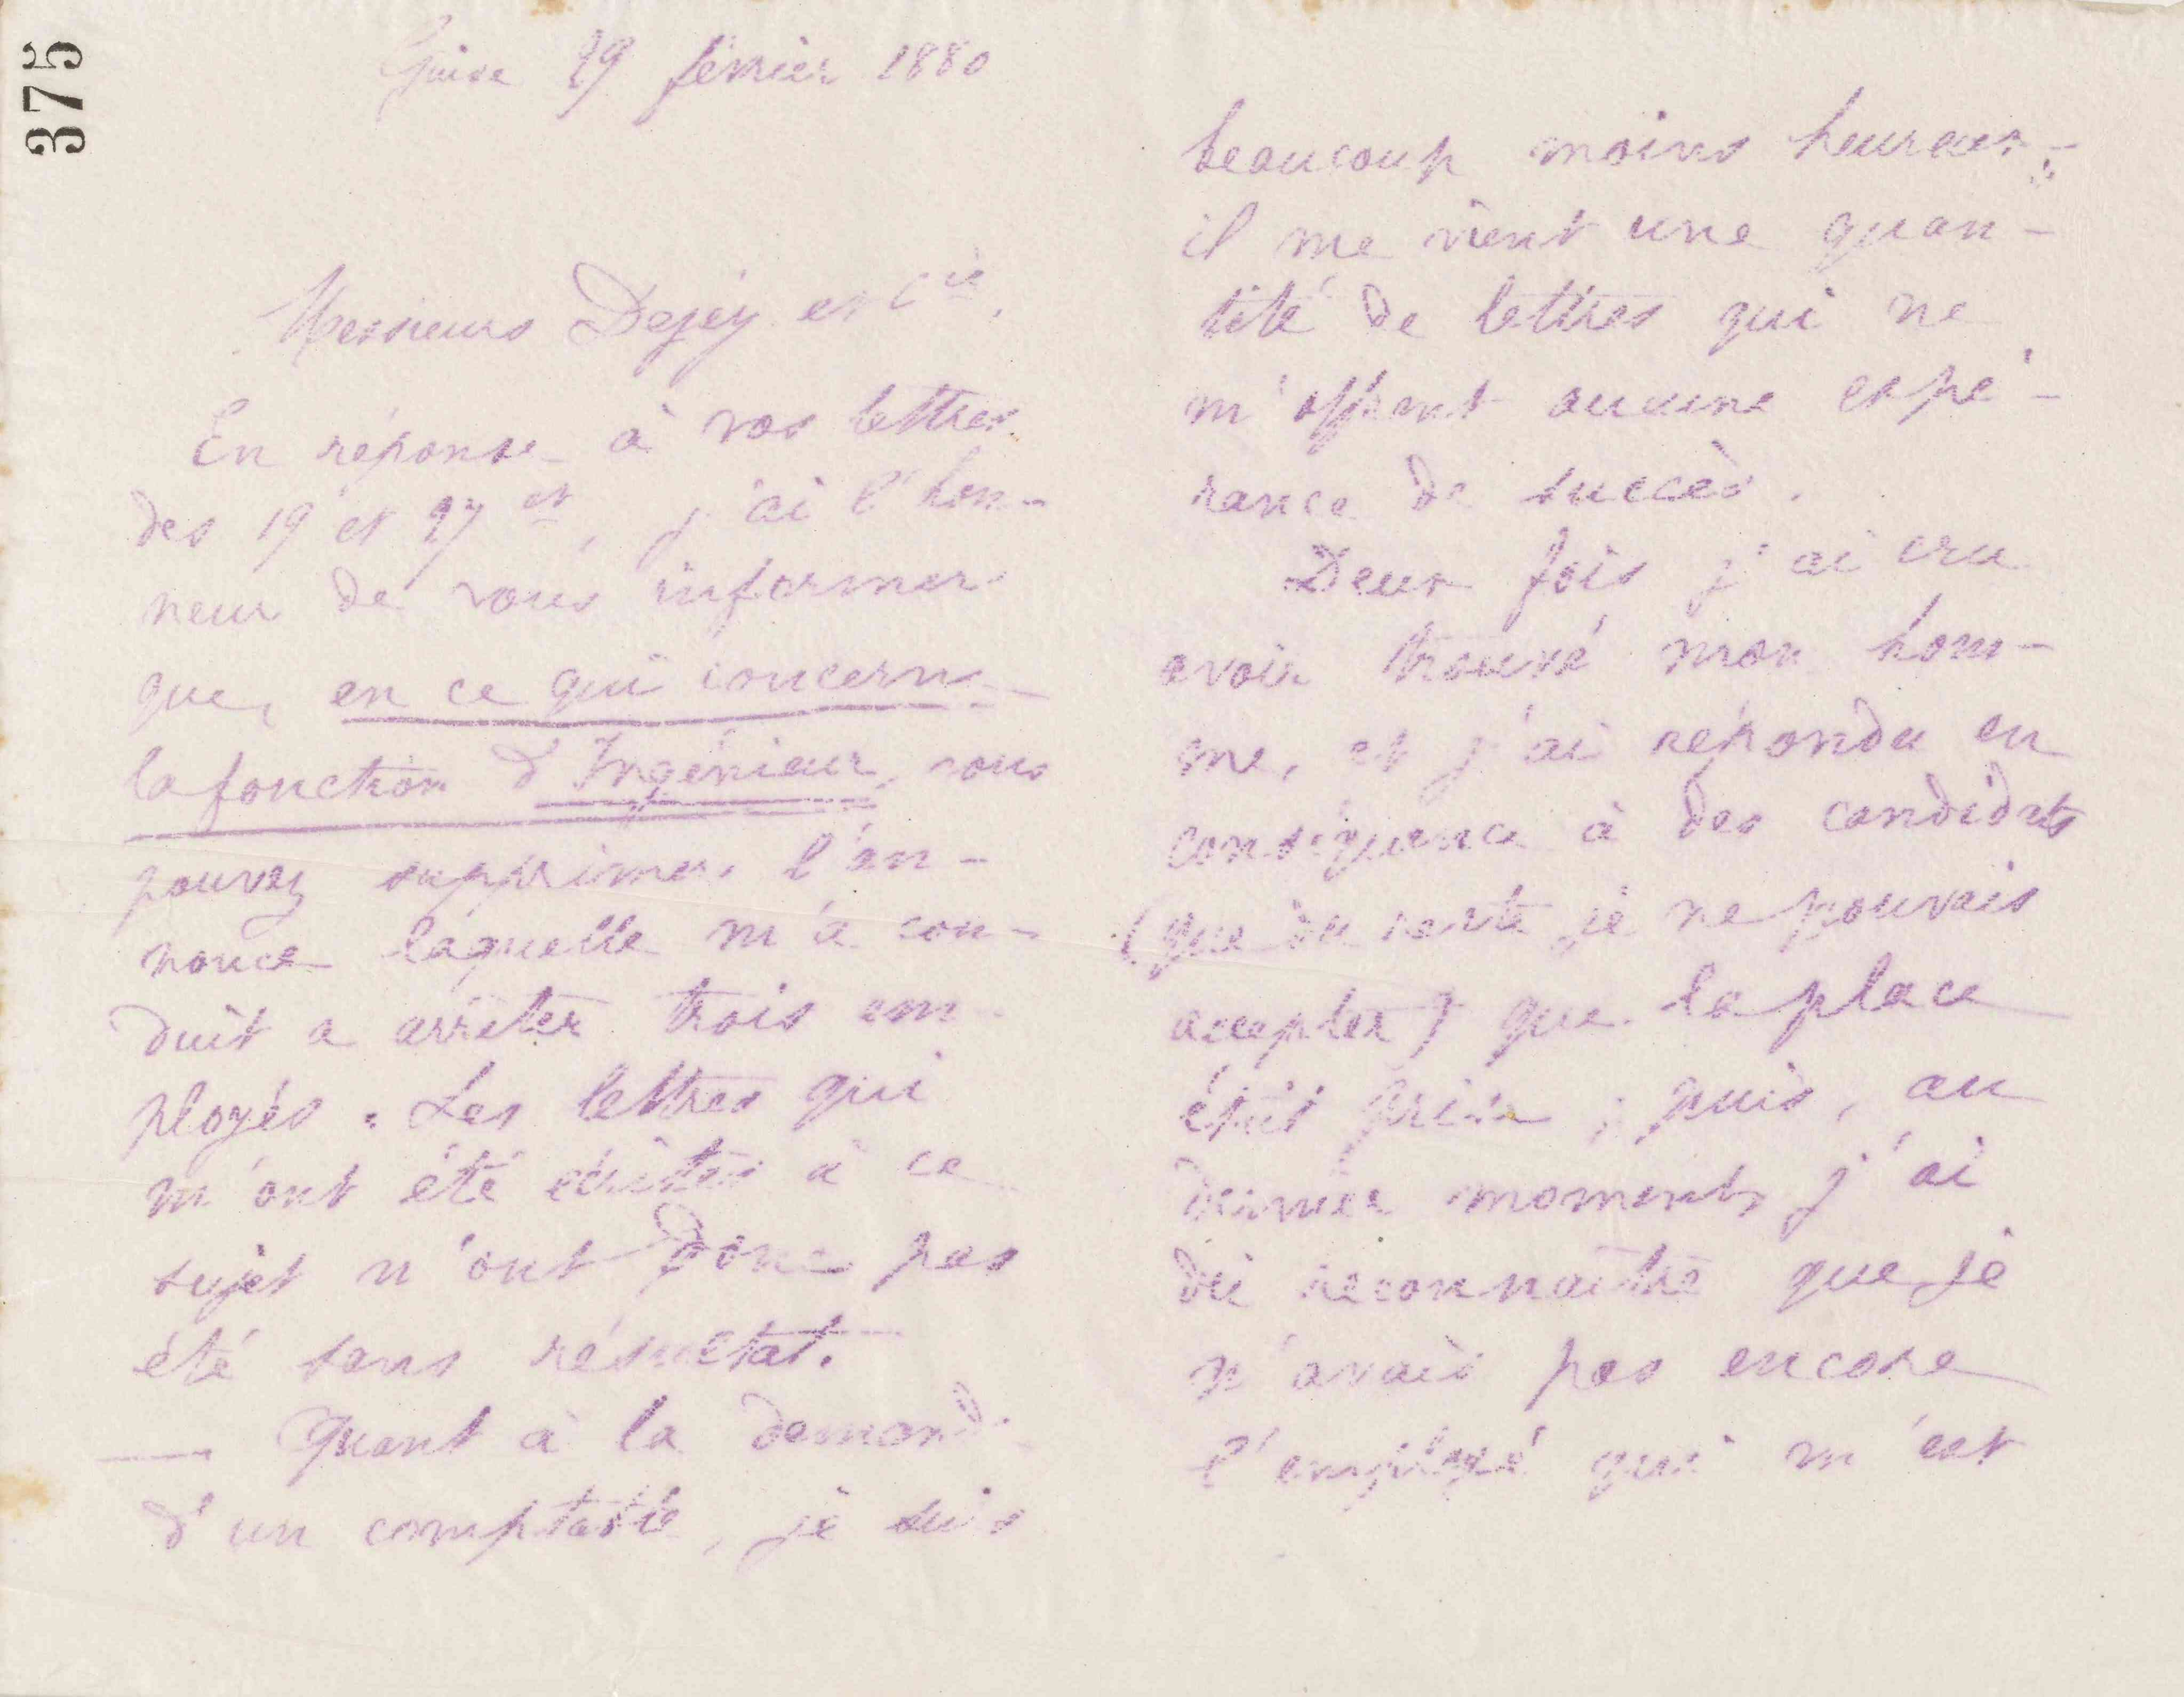 375
Guise 29 février 1880
Messieurs Dejey et Cie.
En réponse à vos lettres
des 19 et 27 ct, j'ai l'hon-
neur de vous informer
que, en ce qui concerne
la fonction d'Ingénieur, vous
pouvez supprimer l'an-
nonce laquelle m'a con-
duit a arrêter trois em-
ployés. Les lettres qui
m'ont été écrites à ce
sujet n'ont donc pas
été sans résultat.
— Quant à la demande
d'un comptable, je suis
beaucoup moins heureux;
il me vient une quan-
tité de lettres qui ne
m'offrent aucune espé-
rance de succès.
Deux fois j'ai cru
avoir trouvé mon hom-
me, et j'ai répondu en
conséquence à des candidats
(que du reste je ne pouvais
accepter) que la place
était prise ; puis, au
dernier moment, j'ai
dû reconnaître que je
n'avais pas encore
l'employé qui m'est